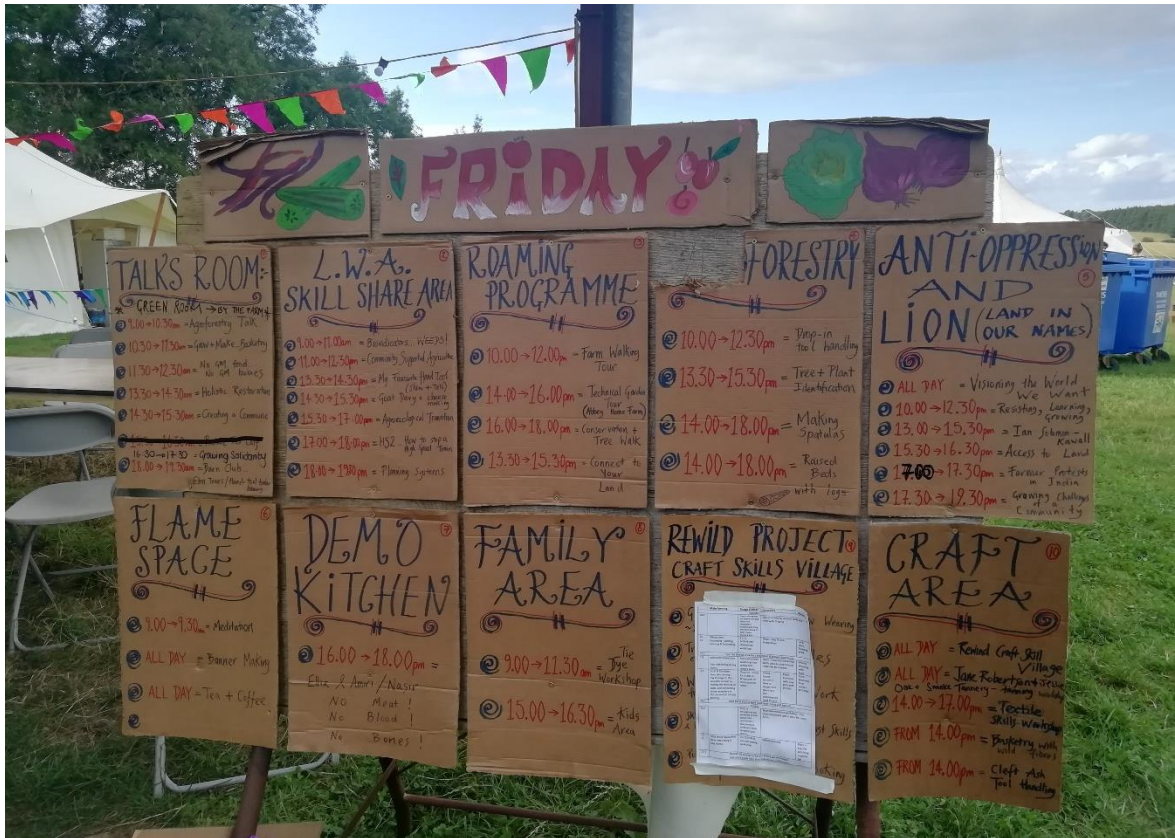 FRIDAY
TALKS ROOM:-
GREEN ROOM → BY THE FARM
9.00 → 10.30am = Agroforestry Talk
10.30 → 11.30am = Grow + Make Basketry
11.30 → 12.30pm = No GM food
No GM babies
13.30 → 14.30pm = Holistic Restoration
14.30 → 15.30pm = Creating a Commune
16.30 → 17.30 = Growing Solidarity
18.00 → 19.30pm = Barn Club
L.W.A.
SKILL SHARE AREA
9.00 → 11.00am = WEEDS!
11.00 → 12.30pm = Community Supported Agriculture
13.30 → 14.30pm = My Favourite Hand Tool
14.30 → 15.30pm = Goat Dairy + cheese
making
15.30 → 17.00pm = Agroecological Transition
17.00 → 18.00pm = HS2. How to stop a
High Speed Train
= Planning Systems
ROAMING
PROGRAMME
10.00 → 12.00pm = Farm Walking
Tour
14.00 → 16.00pm = Technical Garden
Tour
(Abbey Home Farm)
16.00 → 18.00pm = Conservation +
Tree Walk
13.30 → 15.30pm = Connect to
Your
Land
FORESTRY
10.00 → 12.30pm = Drop-in
tool handling
13.30 → 15.30pm = Tree + Plant
Identification
14.00 → 18.00pm = Making
Spatulas
14.00 → 18.00pm = Raised
Beds
with logs
ANTI-OPPRESSION
AND
LION (LAND IN
OUR NAMES)
ALL DAY = Visioning the World
We Want
10.00 → 12.30pm = Resisting, Learning,
Growing
13.00 → 15.30pm = Ian Solomon-
Kawall
15.30 → 16.30pm = Access to Land
→ 17.30pm = Farmer Protests
in India
17.30 → 19.30pm = Growing Challenges
of a
Community
FLAME
SPACE
9.00 → 9.30am = Meditation
ALL DAY = Banner Making
ALL DAY = Tea + Coffee
DEMO
KITCHEN
16.00 → 18.00pm =
Amiri / Nasir
No Meat!
No Blood!
No Bones!
FAMILY
AREA
9.00 → 11.30am = Tie
Dye
Workshop
15.00 → 16.30pm = Kids
Area
REWILD PROJECT
CRAFT SKILLS VILLAGE
Weaving
Skills
CRAFT
AREA
ALL DAY = Rewind Craft Skill
Village
ALL DAY = Jane Robertson + Jessie
Oak + Smoke Tannery - tanning workshop
14.00 → 17.00pm = Textile
Skills Workshop
FROM 14.00pm = Basketry with
wild fibres
FROM 14.00pm = Cleft Ash
Tool Handling